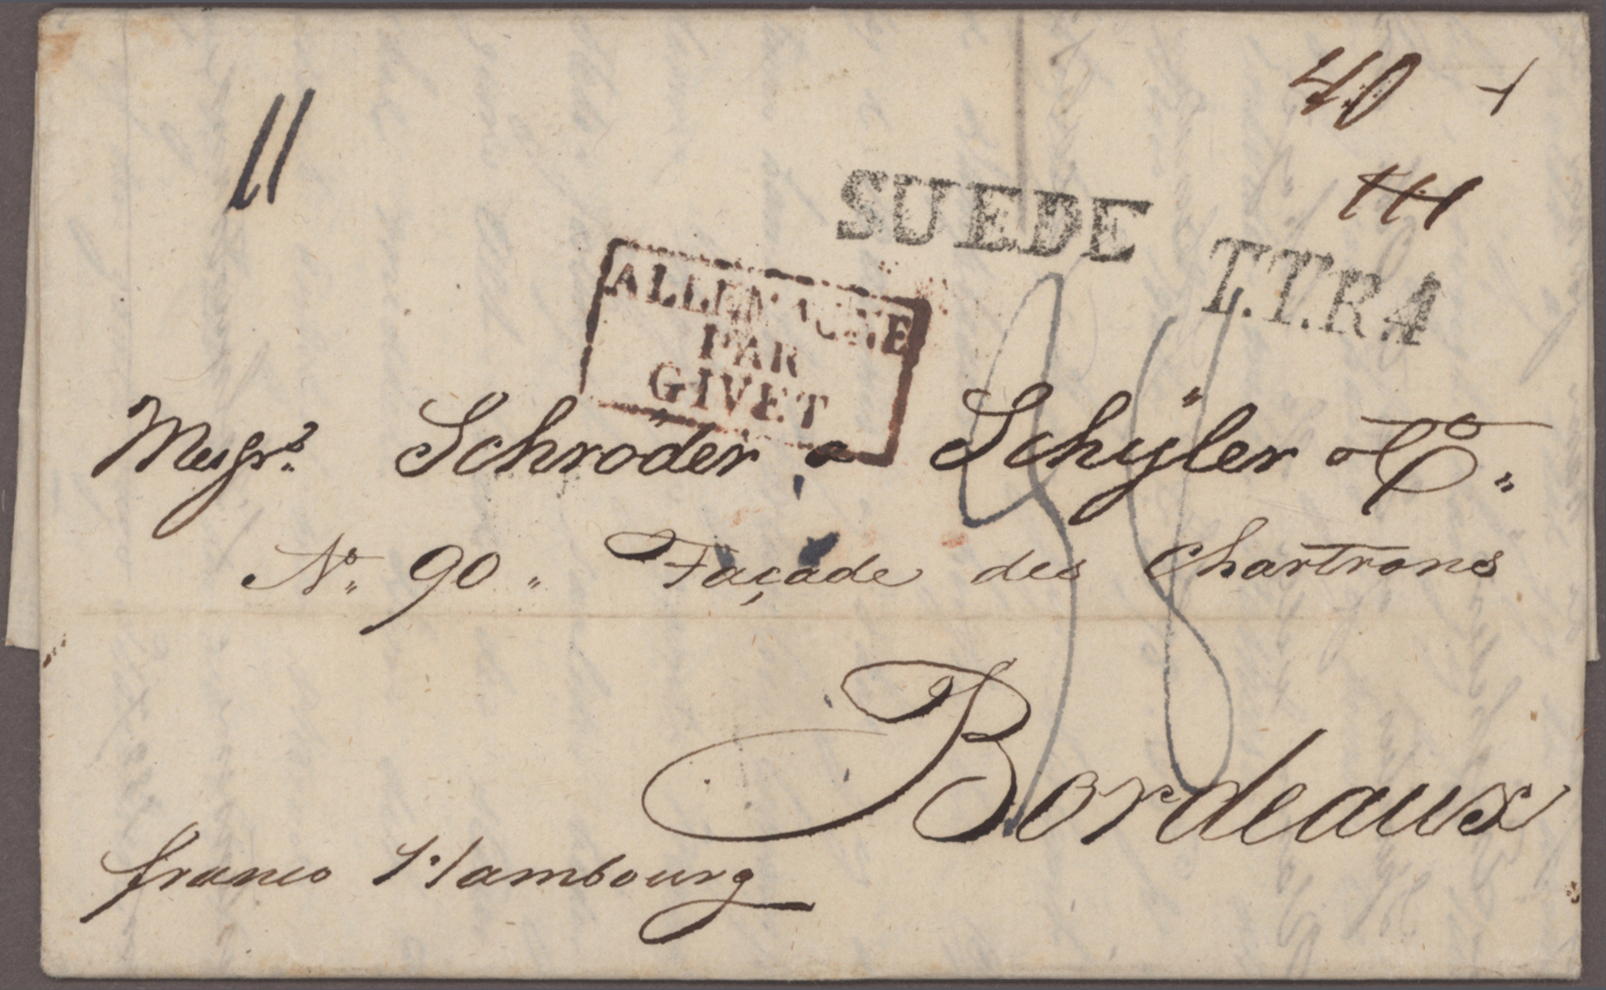 11
40
SUEDE
T.T.R.4
ALLEMAGNE
PAR
GIVET
Messrs. Schröder & Schÿler & Co.
No. 90. Façade des Chartrons
Bordeaux
franco Hambourg